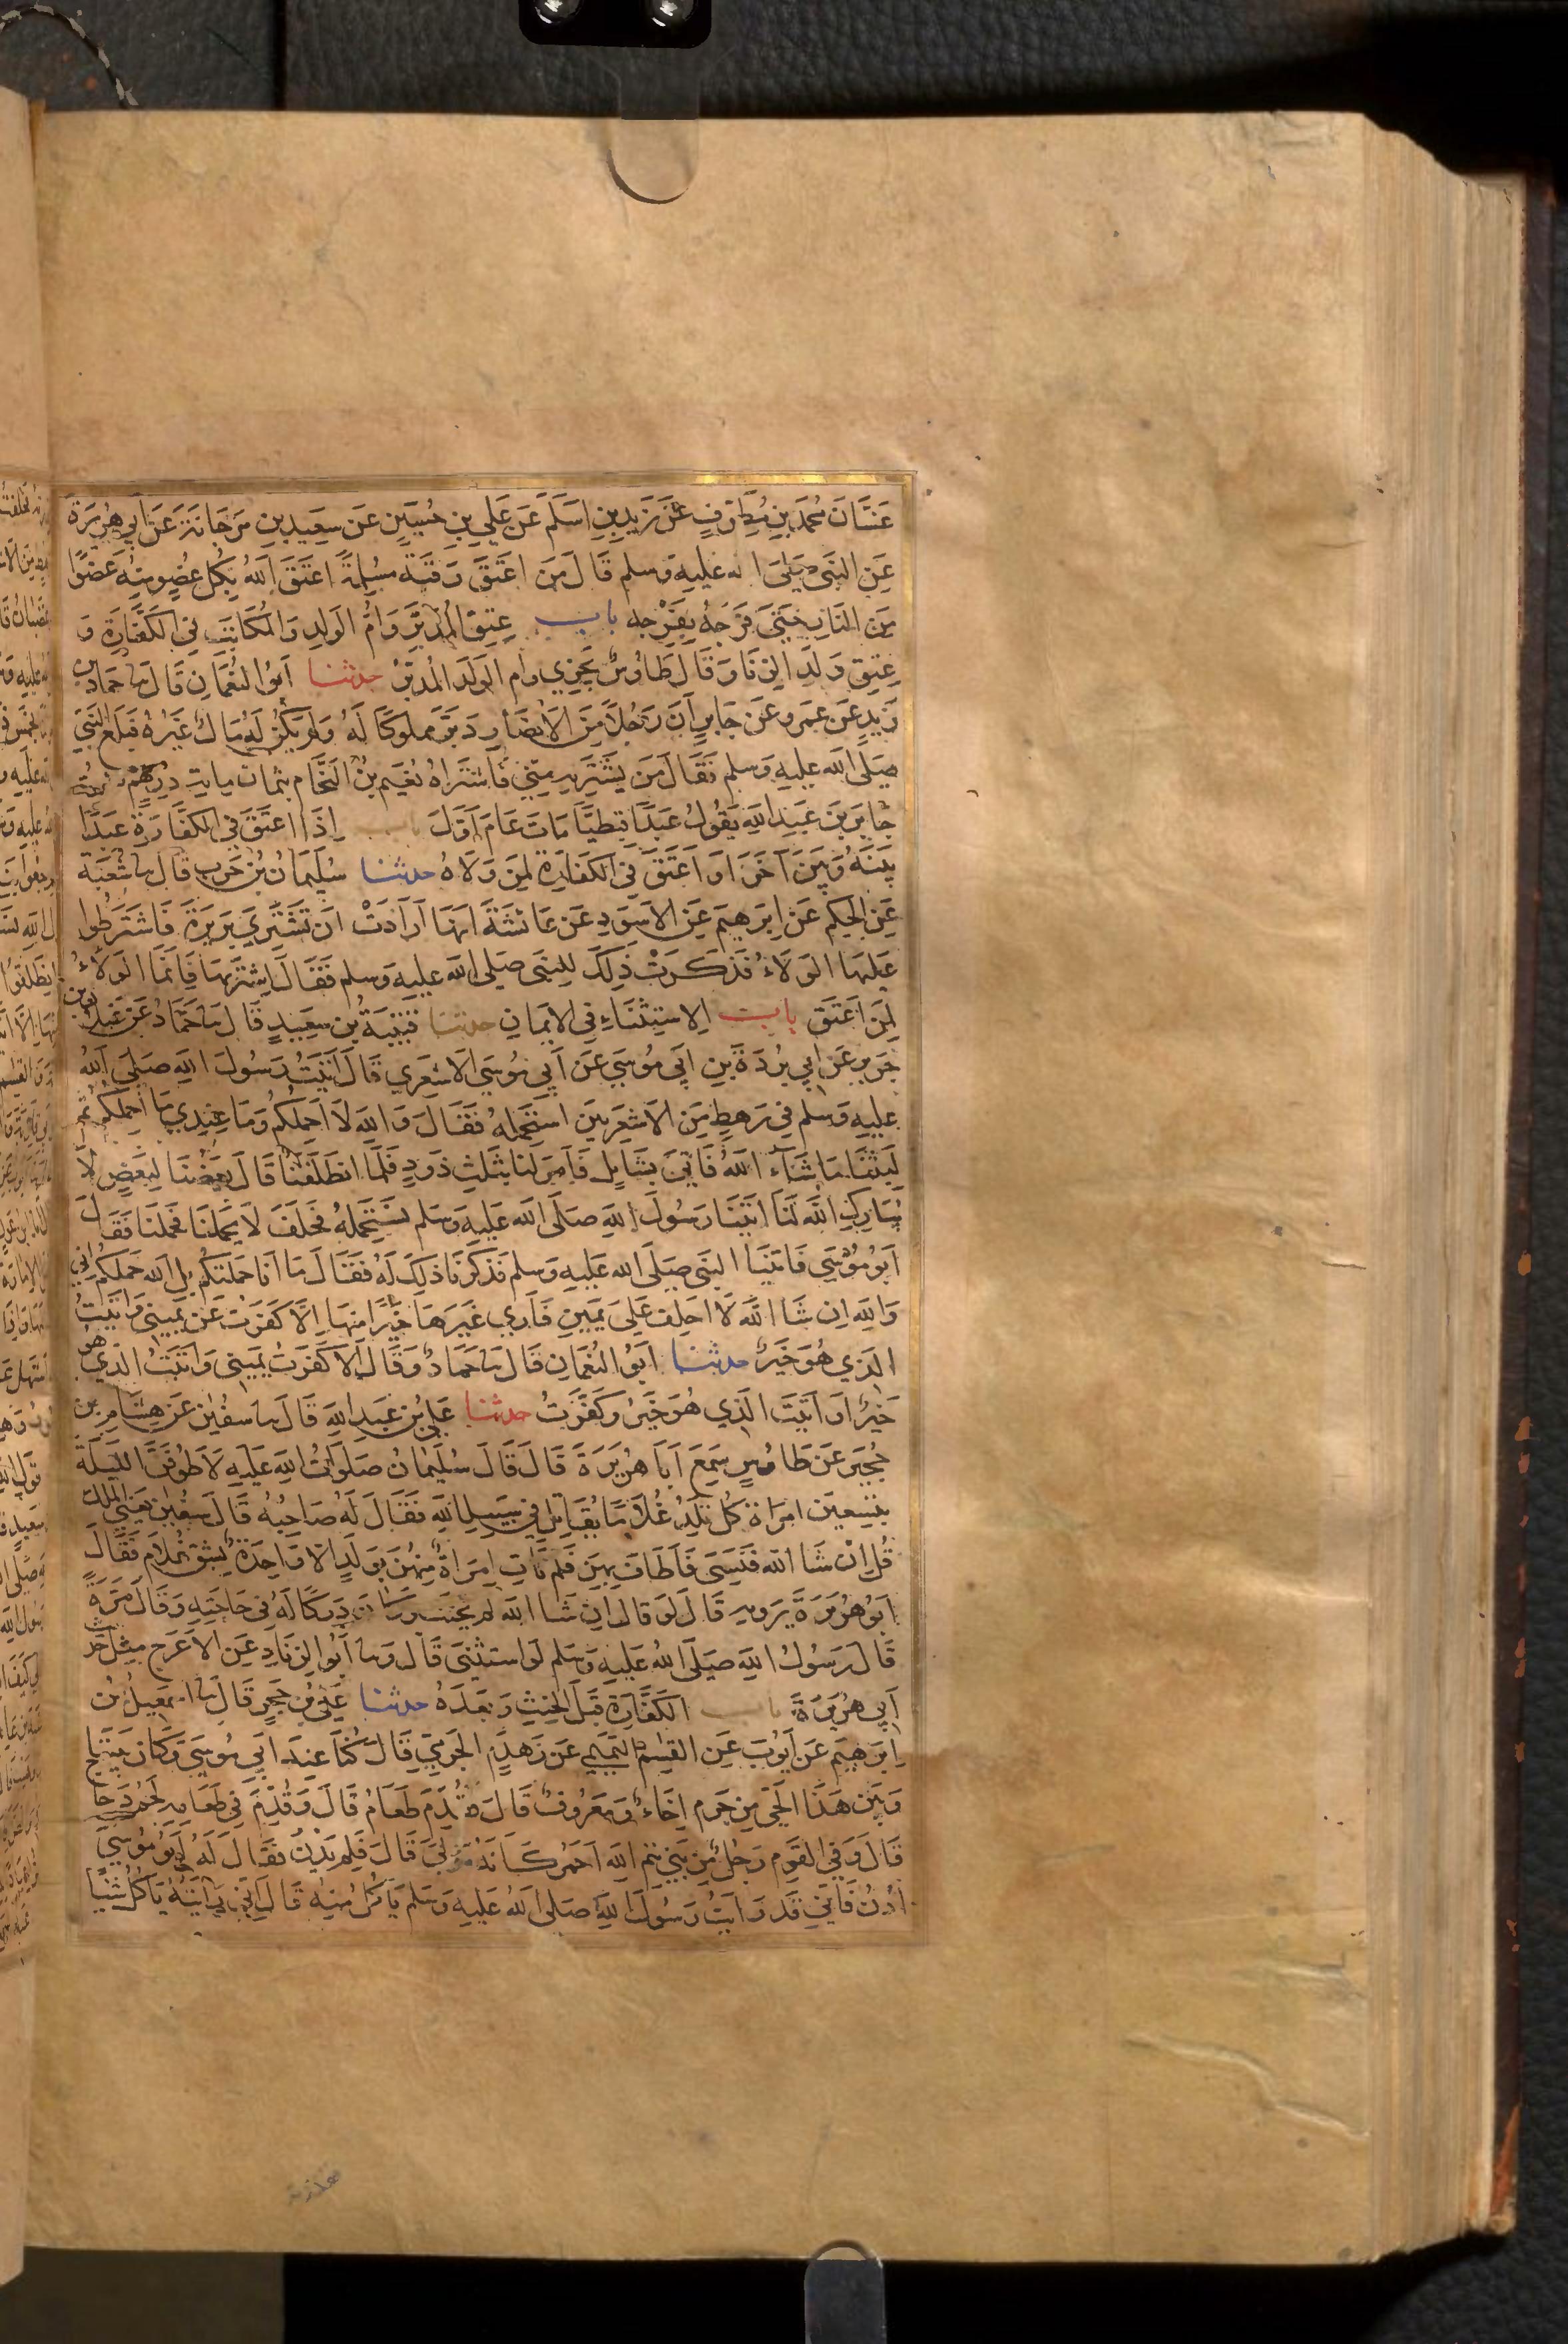 غسان محمد بن مطرف عن زيد بن اسلم عن علي بن حسين عن سعيد بن مرجانة عن ابي هريرة
عن النبي صلى الله عليه وسلم قال من اعتق رقبة مسلمة اعتق الله بكل عضو منه عضوا
من النار حتى فرجه بفرجه باب عتق المدبر وام الولد والمكاتب في الكفارة و
عتق ولد الزنا وقال طاوس يجزي وام الولد المدبر حدثنا ابو النعمان قال ثنا حماد بن
زيد عن عمرو عن جابر ان رجلا من الانصار دبر مملوكا له ولم يكن له مال غيره فبلغ النبي
صلى الله عليه وسلم فقال من يشتريه مني فاشتراه نعيم بن النحام بثمان ماية درهم فسمعت
جابر بن عبد الله يقول عبدا قبطيا مات عام اول باب اذا اعتق في الكفارة عبدا
بينه وبين آخر او اعتق في الكفارة لمن ولاه حدثنا سليمان بن حرب قال ثنا شعبة
عن الحكم عن ابرهيم عن الاسود عن عائشة انها ارادت ان تشتري بريرة فاشترطوا
عليها الولاء فذكرت ذلك للنبي صلى الله عليه وسلم فقال اشتريها فانما الولاء
لمن اعتق باب الاستثناء في الايمان حدثنا قتيبة بن سعيد قال ثنا حماد عن غيلان بن
جرير عن ابي بردة بن ابي موسي عن ابي موسي الاشعري قال اتيت رسول الله صلي الله
عليه وسلم في رهط من الاشعريين استحمله فقال والله لا احملكم وما عندي ما احملكم ثم
لبثنا ما شآء الله فاتي بشايل فامر لنا بثلث ذود فلما انطلقنا قال بعضنا لبعض لا
يبارك الله لنا اتينا رسول الله صلى الله عليه وسلم نستحمله فحلف لا يحملنا فحملنا فقال
ابو موسي فاتينا النبي صلى الله عليه وسلم فذكرنا ذلك له فقال ما انا حملتكم بل الله حملكم اني
والله ان شا الله لا احلف علي يمين فاري غيرها خيرا منها الا كفرت عن يميني واتيت
الذي هو خير حدثنا ابو النعمان قال ثنا حماد وقال الا كفرت يميني واتيت الذي هو
خير او اتيت الذي هو خير وكفرت حدثنا علي بن عبد الله قال ثنا سفين عن هشام بن
حجير عن طاوس سمع ابا هريرة قال قال سليمان صلوات الله عليه لاطوفن الليلة
بتسعين امراة كل تلد غلاما يقاتل في سبيل الله فقال له صاحبه قال سفين يعني الملك
قل ان شا الله فنسى فاطاف بهن فلم تات امراة منهن بولد الا واحدة بشق غلام فقال
ابو هريرة يرويه قال لو قال ان شا الله لم يحنث وكان دركا له في حاجته وقال مرة
قال رسول الله صلى الله عليه وسلم لو استثنى قال وثنا ابو الزناد عن الاعرج مثل حديث
ابي هريرة باب الكفارة قبل الحنث وبعده حدثنا علي بن حجر قال ثنا اسمعيل بن
ابرهيم عن ايوب عن القسم التميمي عن زهدم الجرمي قال كنا عند ابي موسي وكان بيننا
وبين هذا الحي من جرم اخاء ومعروف قال فقدم طعام قال وقدم في طعامه لحم دجاج
قال وفي القوم رجل من بني تيم الله احمر كانه مولى قال فلم يدن فقال له ابو موسي
ادن فاني قد رايت رسول الله صلى الله عليه وسلم ياكل منه قال اني رايته ياكل شيا